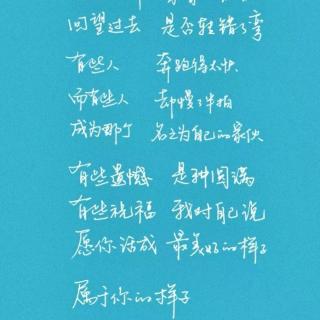 回望过去 是否轻错了弯
有些人 奔跑得太快
而有些人 却慢了半拍
成为那个 名之为自己的家伙
有些遗憾 是种圆满
有些祝福 我对自己说
愿你活成 最美好的样子
属于你的样子